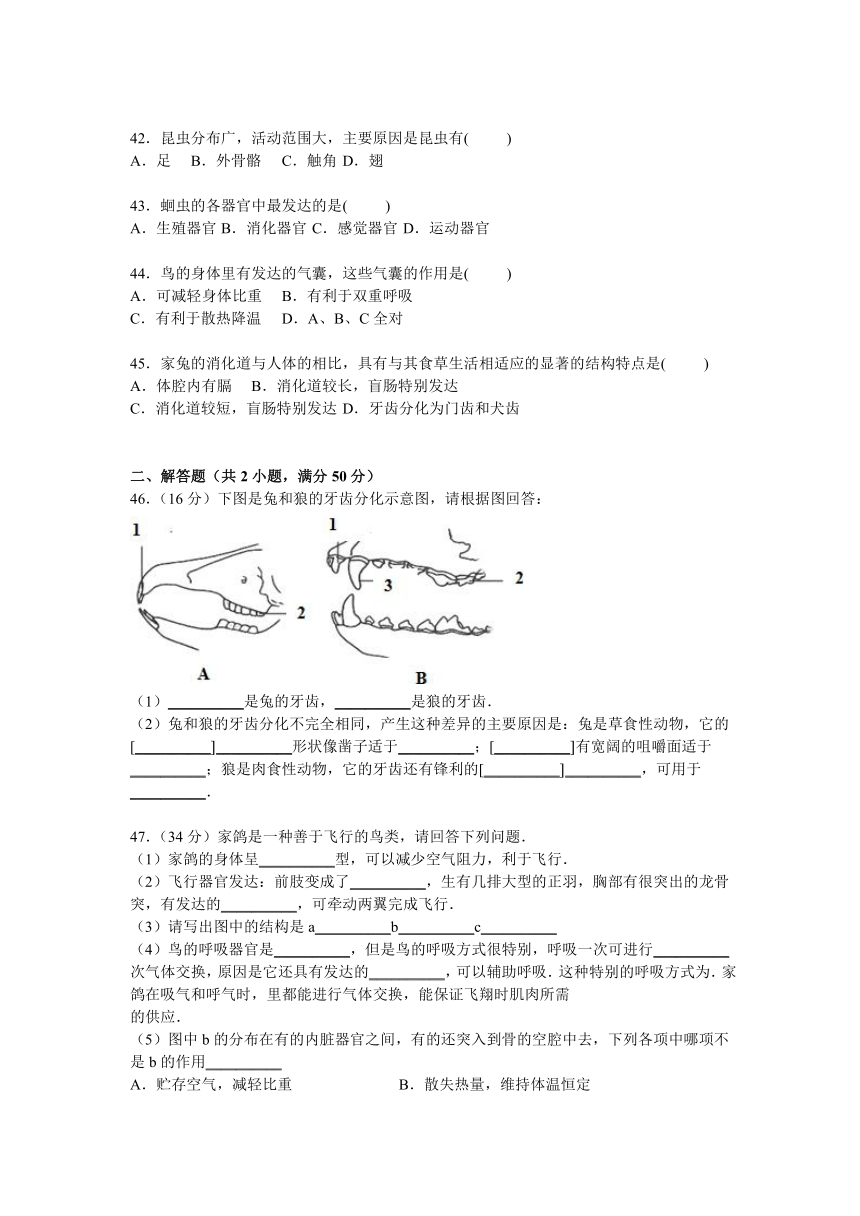 42．昆虫分布广，活动范围大，主要原因是昆虫有(　　)
A．足　B．外骨骼　C．触角 D．翅
43．蛔虫的各器官中最发达的是(　　)
A．生殖器官 B．消化器官 C．感觉器官 D．运动器官
44．鸟的身体里有发达的气囊，这些气囊的作用是(　　)
A．可减轻身体比重　B．有利于双重呼吸
C．有利于散热降温　D．A、B、C 全对
45．家兔的消化道与人体的相比，具有与其食草生活相适应的显著的结构特点是(　　)
A．体腔内有膈　B．消化道较长，盲肠特别发达
C．消化道较短，盲肠特别发达 D．牙齿分化为门齿和犬齿
二、解答题（共 2 小题，满分 50 分）
46．（16 分）下图是兔和狼的牙齿分化示意图，请根据图回答：
1
1
3
2
2
A
B
（1）__________是兔的牙齿，__________是狼的牙齿．
（2）兔和狼的牙齿分化不完全相同，产生这种差异的主要原因是：兔是草食性动物，它的
[__________]__________形状像凿子适于__________；[__________]有宽阔的咀嚼面适于
__________；狼是肉食性动物，它的牙齿还有锋利的[__________]__________，可用于
__________．
47．（34 分）家鸽是一种善于飞行的鸟类，请回答下列问题．
（1）家鸽的身体呈__________型，可以减少空气阻力，利于飞行．
（2）飞行器官发达：前肢变成了__________，生有几排大型的正羽，胸部有很突出的龙骨
突，有发达的__________，可牵动两翼完成飞行．
（3）请写出图中的结构是 a__________b__________c__________
（4）鸟的呼吸器官是__________，但是鸟的呼吸方式很特别，呼吸一次可进行__________
次气体交换，原因是它还具有发达的__________，可以辅助呼吸．这种特别的呼吸方式为．家
鸽在吸气和呼气时，里都能进行气体交换，能保证飞翔时肌肉所需
的供应．
（5）图中 b 的分布在有的内脏器官之间，有的还突入到骨的空腔中去，下列各项中哪项不
是 b 的作用__________
A．贮存空气，减轻比重　　B．散失热量，维持体温恒定